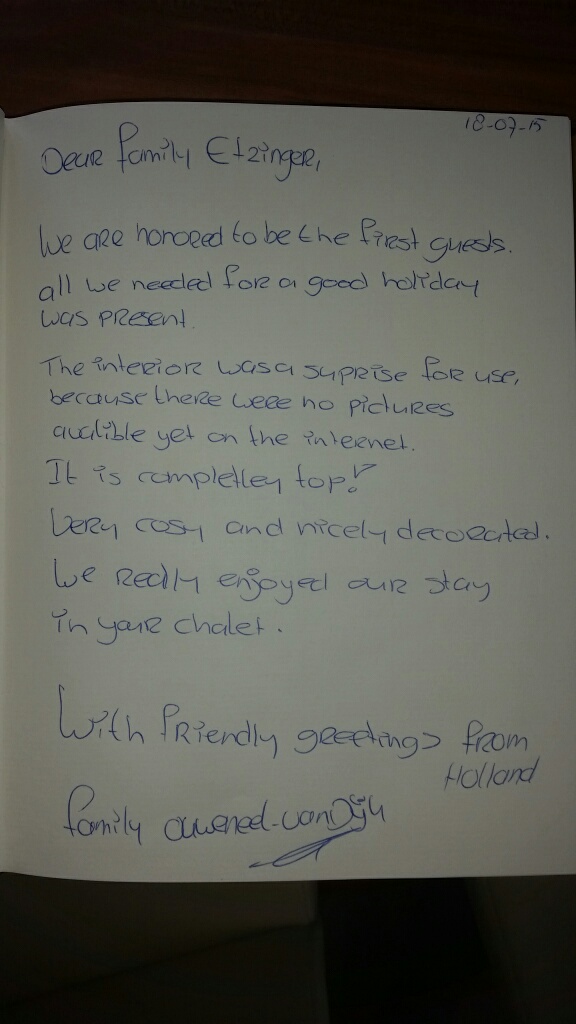 18-07-15
Dear family Etzinger,
We are honored to be the first guests.
all we needed for a good holiday
was present.
The interior was a suprise for use,
because there were no pictures
audible yet on the internet.
It is completley top!
Very cosy and nicely decorated.
We really enjoyed our stay
in your chalet.
With friendly greetings from
Holland
family